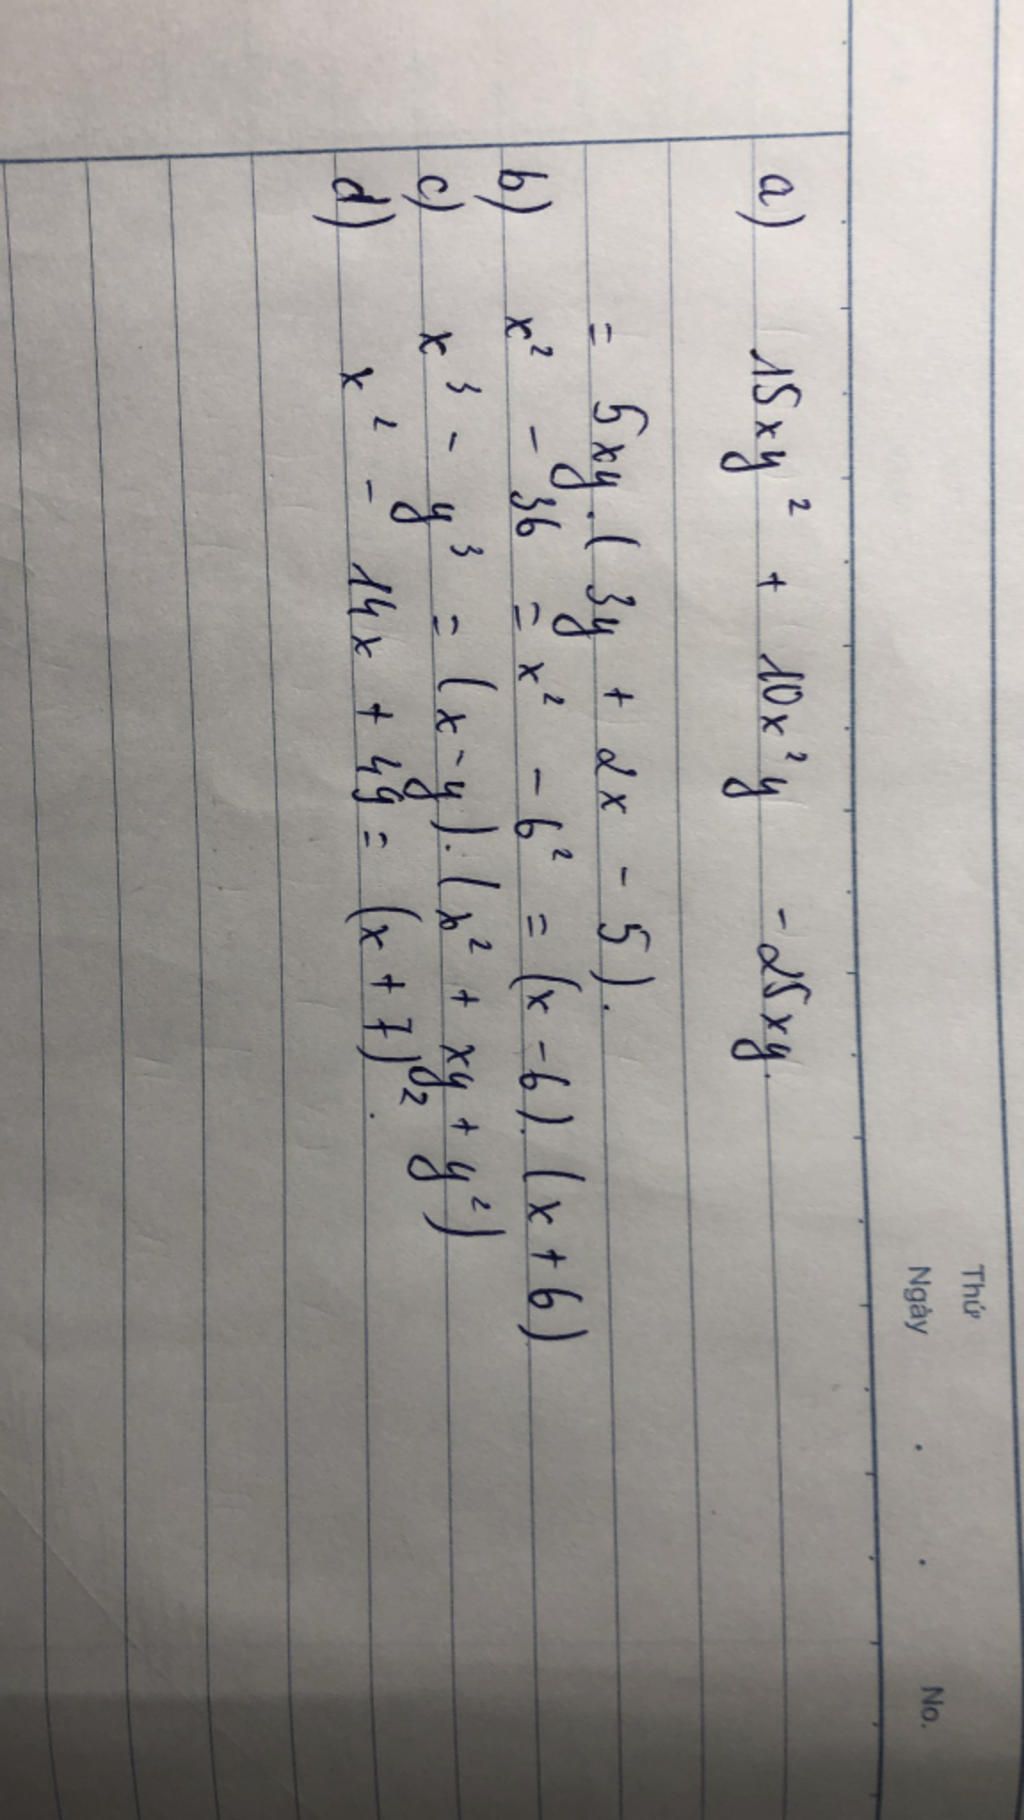 Thứ
Ngày . . No.
a) 15xy² + 10x²y - 25xy.
= 5xy.(3y + 2x - 5).
b) x² - 36 = x² - 6² = (x - 6).(x + 6)
c) x³ - y³ = (x - y).(x² + xy + y²)
d) x² - 14x + 49 = (x + 7)².